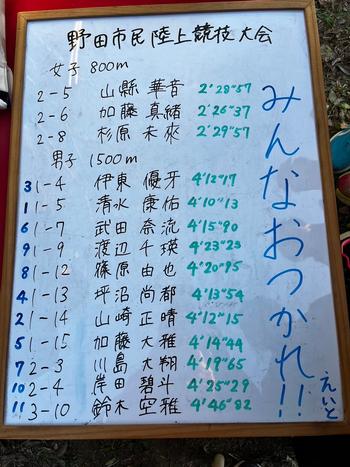 野田市民陸上競技大会
女子 800m
2-5 山縣 華音 2'28"57
2-6 加藤 真緒 2'26"37
2-8 杉原 未來 2'29"57
男子 1500m
3 1-4 伊東 優牙 4'12"17
1 1-5 清水 康佑 4'10"13
6 1-7 武田 奈流 4'15"90
9 1-9 渡辺 千瑛 4'23"23
8 1-12 篠原 由也 4'20"95
4 1-13 坪沼 尚都 4'13"54
2 1-14 山崎 正晴 4'12"15
5 1-15 加藤 大雅 4'14"44
7 2-3 川島 大翔 4'19"65
10 2-4 岸田 碧斗 4'25"29
11 3-10 鈴木 空雅 4'46"82
みんなおつかれ!!
えいと